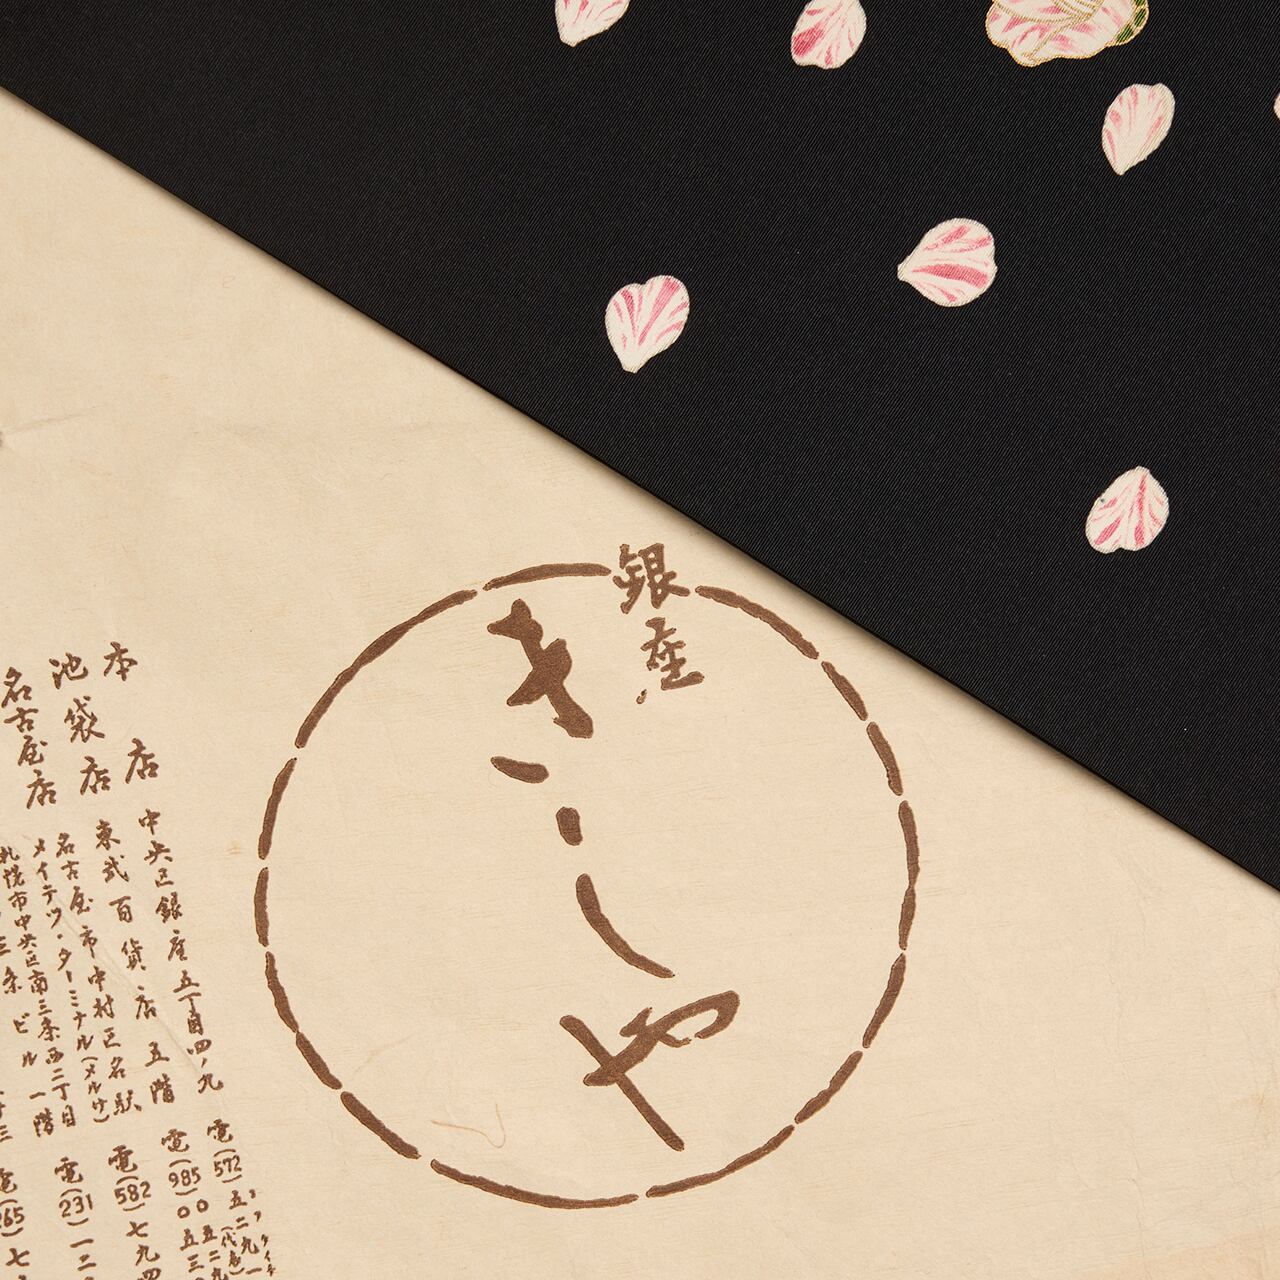 銀座
きしや
本店 中央区銀座五丁目四ノ九 電(572)五二九一(代表)
池袋店 東武百貨店五階 電(985)〇五二九
名古屋店 名古屋市中村区名駅 電(582)七九四
メイテツ・ターミナル(メルサ)
札幌市中央区南三条西二丁目 電(231)一二
三条ビル一階